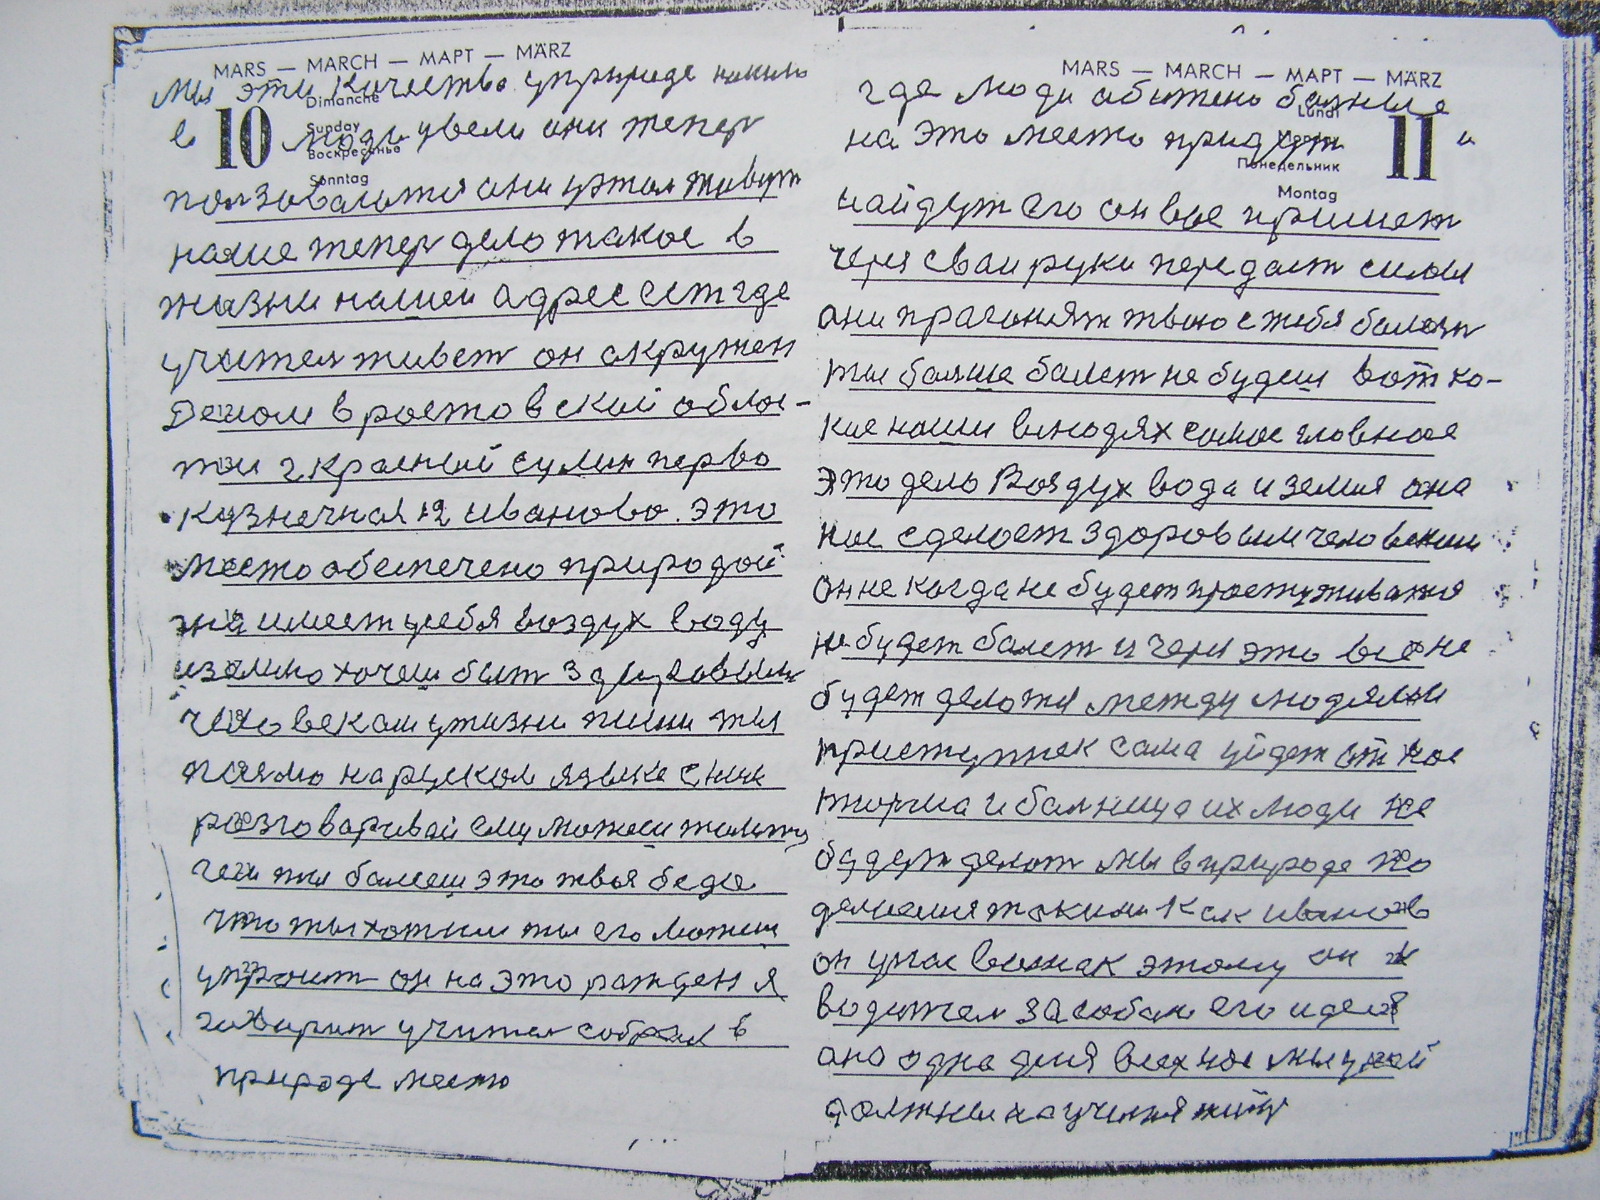 MARS — MARCH — МАРТ — MÄRZ
мы эти качества у природе
Dimanche
10
Sunday
Воскресенье
Sonntag
е люди увели они тепер
ползоваются они этим живут
наше тепер дело такое в
жызни нашей адрес ест где
учител живет он окружен
Деном в ростовской облос-
ти г красный сулин перва
кузнечная 12 иванова. это
место обеспечено природой
имеет у себя воздух воду
и землю хочеш быт здуровым
человеком у жизни пиши ты
прямо на руском языке с ним
розговаривай ему можеш
чем ты болееш это твоя беда
что ты хотиш ты его можеш
упросит он на это ражден я
говорит учител собрал в
природе место
MARS — MARCH — МАРТ — MÄRZ
где люди абижено болныe
Lundi
11
Monday
Понедельник
Montag
на это место придут и
найдут его он вас примет
через сваи руки передаст силы
ани прагонят твою с тебя болезн
ты болше болет не будеш вот ка-
кие наши в людях самое главное
это дело Воздух вода и земля она
нас сделает здоровым человеком
он не когда не будет простуживатся
не будет болет и через это всё не
будет делатся между людями
приступнек сама уйдет от нас
тюрма и болница их люди не
будут делат мы в природе по
делаемя такими как иванов
он у нас
водител за собою его идея
ана одна для всех нас мы у ней
должны научится жит